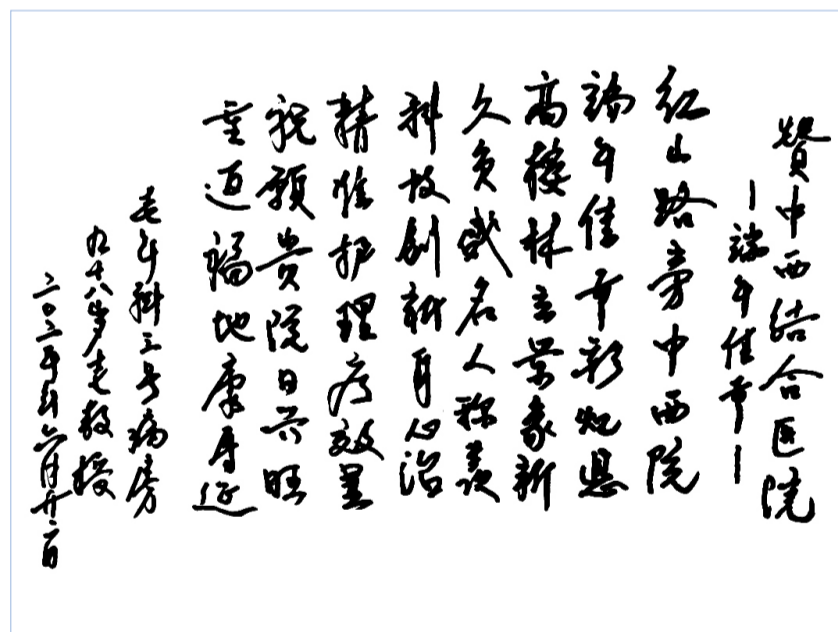 赞中西结合医院
—端午佳节—
红山路旁中西院
端午佳节彩灯悬
高楼林立景象新
久负盛名人称羡
科技创新身心治
精准护理疗效显
祝愿贵院日兴旺
重返福地康寿延
老年科三号病房
九十八岁老教授
二〇二三年六月廿二日